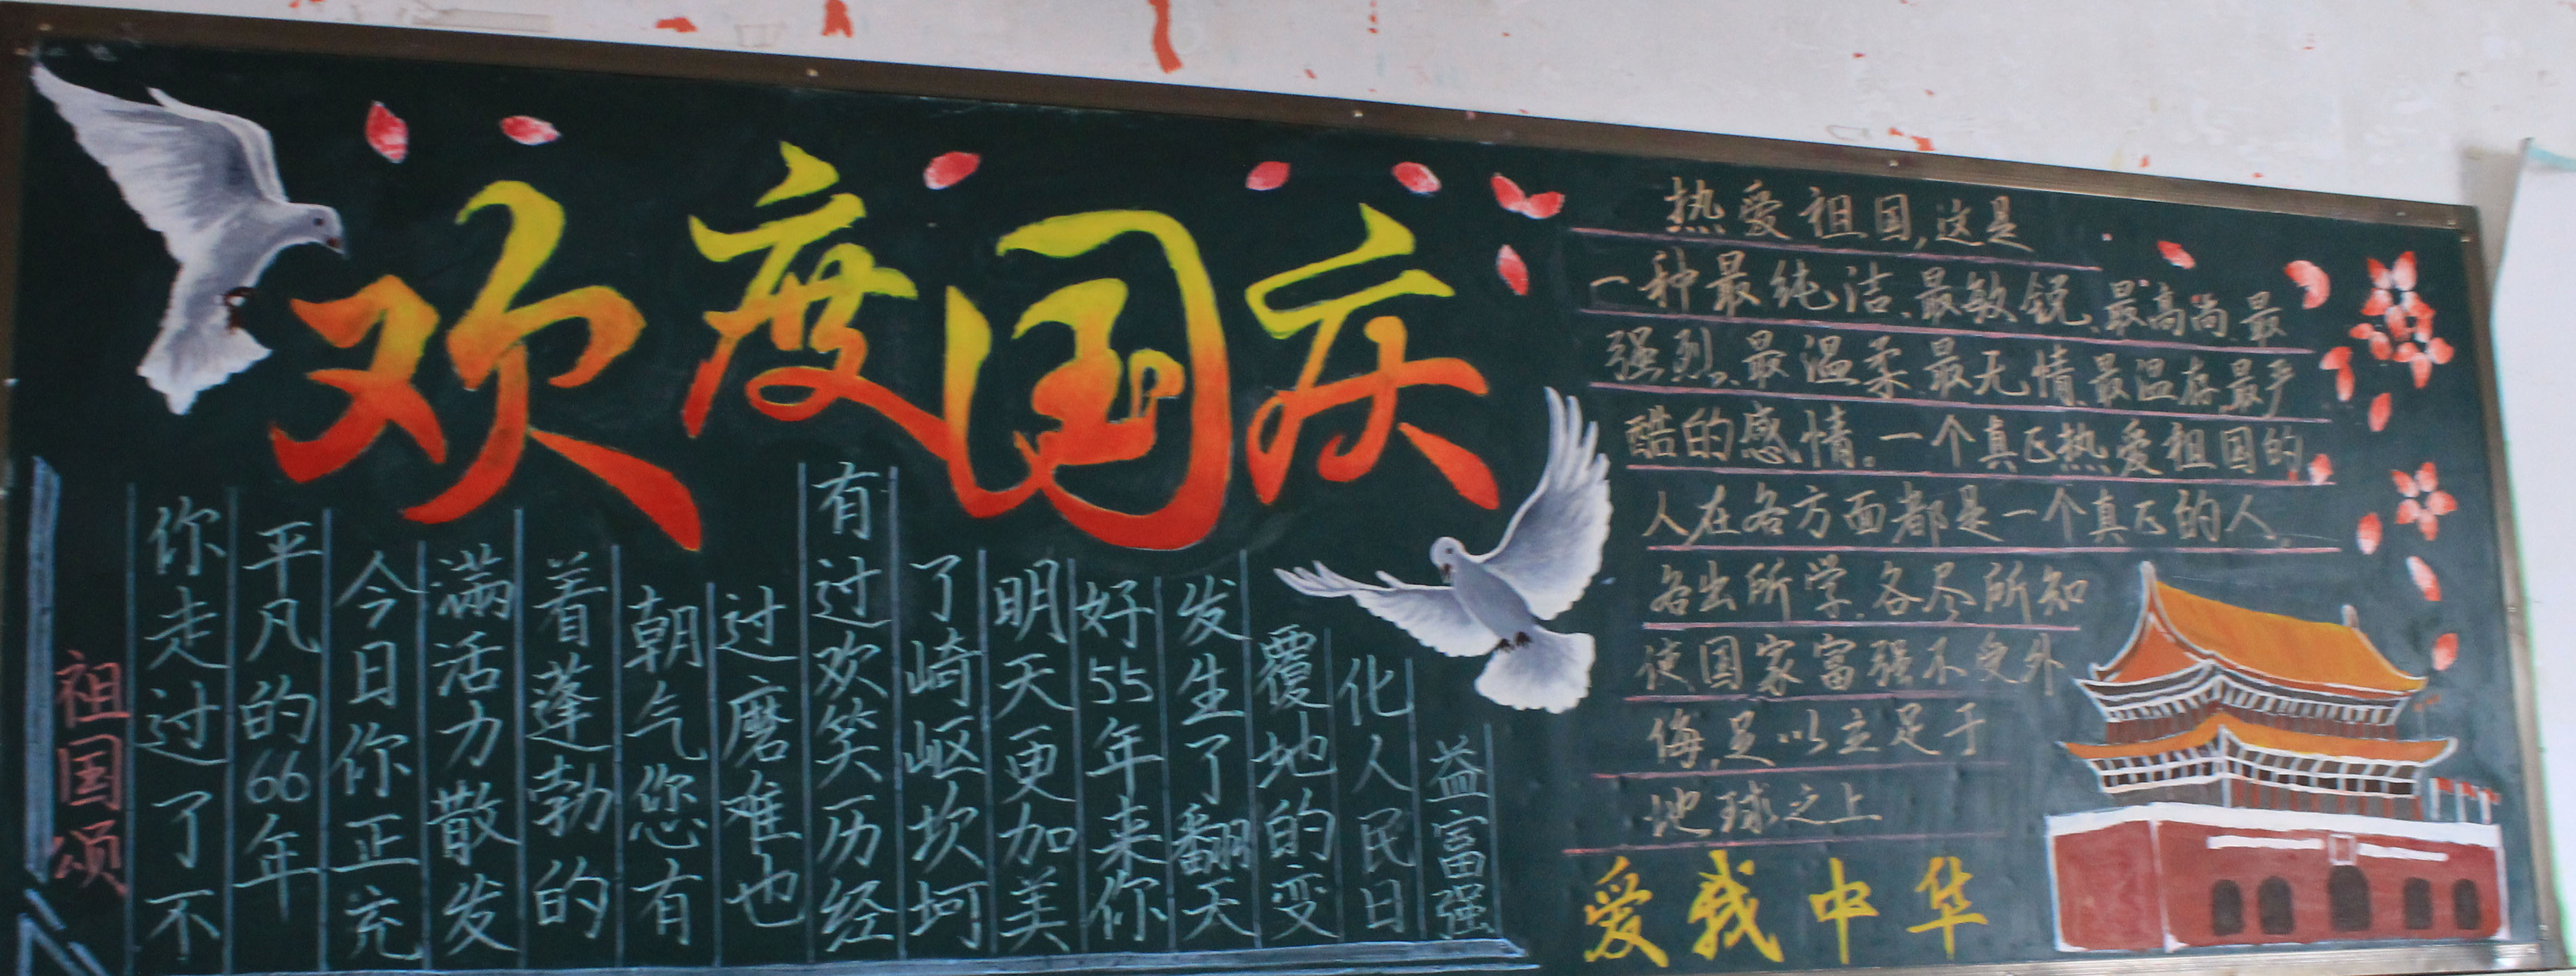 欢度国庆
祖国颂
你走过了不
平凡的66年
今日你正充
满活力散发
着蓬勃的
朝气您有
过磨难也
有过欢笑历经
了崎岖坎坷
明天更加美
好55年来你
发生了翻天
覆地的变
化人民日
益富强
热爱祖国,这是
一种最纯洁、最敏锐、最高尚、最
强烈、最温柔、最无情、最温存、最严
酷的感情。一个真正热爱祖国的
人在各方面都是一个真正的人。
各出所学、各尽所知
使国家富强不受外
侮,足以立足于
地球之上
爱我中华